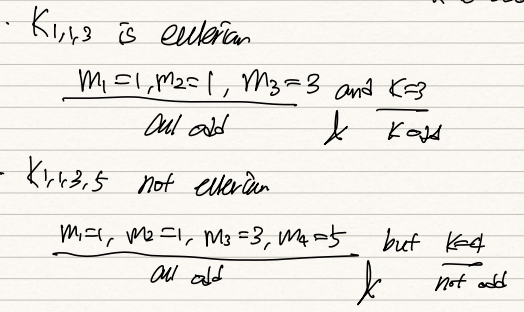 · K1,1,3 is eulerian
m1=1, m2=1, m3=3 and k=3
all odd k odd
- K1,1,3,5 not eulerian
m1=1, m2=1, m3=3, m4=5 but k=4
all odd not odd